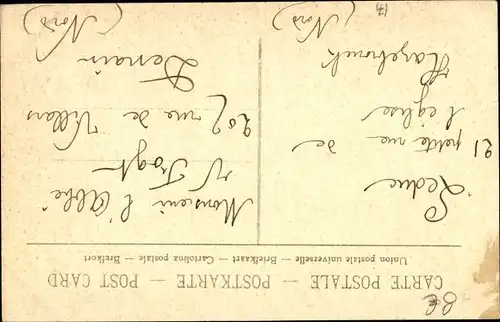 CARTE POSTALE — POSTKARTE — POST CARD
Union postale universelle — Briefkaart — Cartolina postale — Brefkort
Leduc
21 petite rue de
l'église
Hazebrouck
(Nord)
Monsieur l'Abbé
207 rue de Villars
Denain
(Nord)
8€